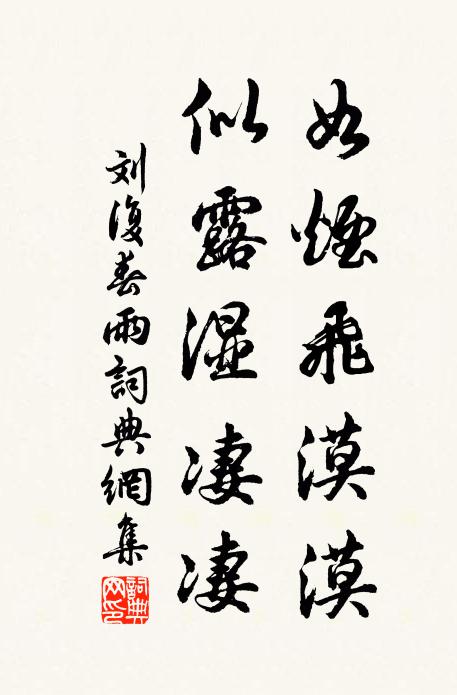 如煙飛漠漠
似露湿凄凄
刘復春雨詞典網集
詞典网印